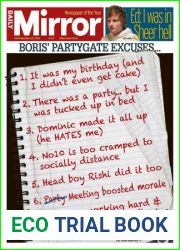 DAILY
Mirror
Newspaper of the Year
Ed: I was in
Sheer hell
BORIS' PARTYGATE EXCUSES...
1. It was my birthday (and
I didn't even get cake)
2. There was a party... but I
was tucked up in bed
3. Dominic made it all up
(he HATES me)
4. No10 is too cramped to
socially distance
5. Head boy Rishi did it too
6. Party Meeting boosted morale
working hard &
ECO TRIAL BOOK